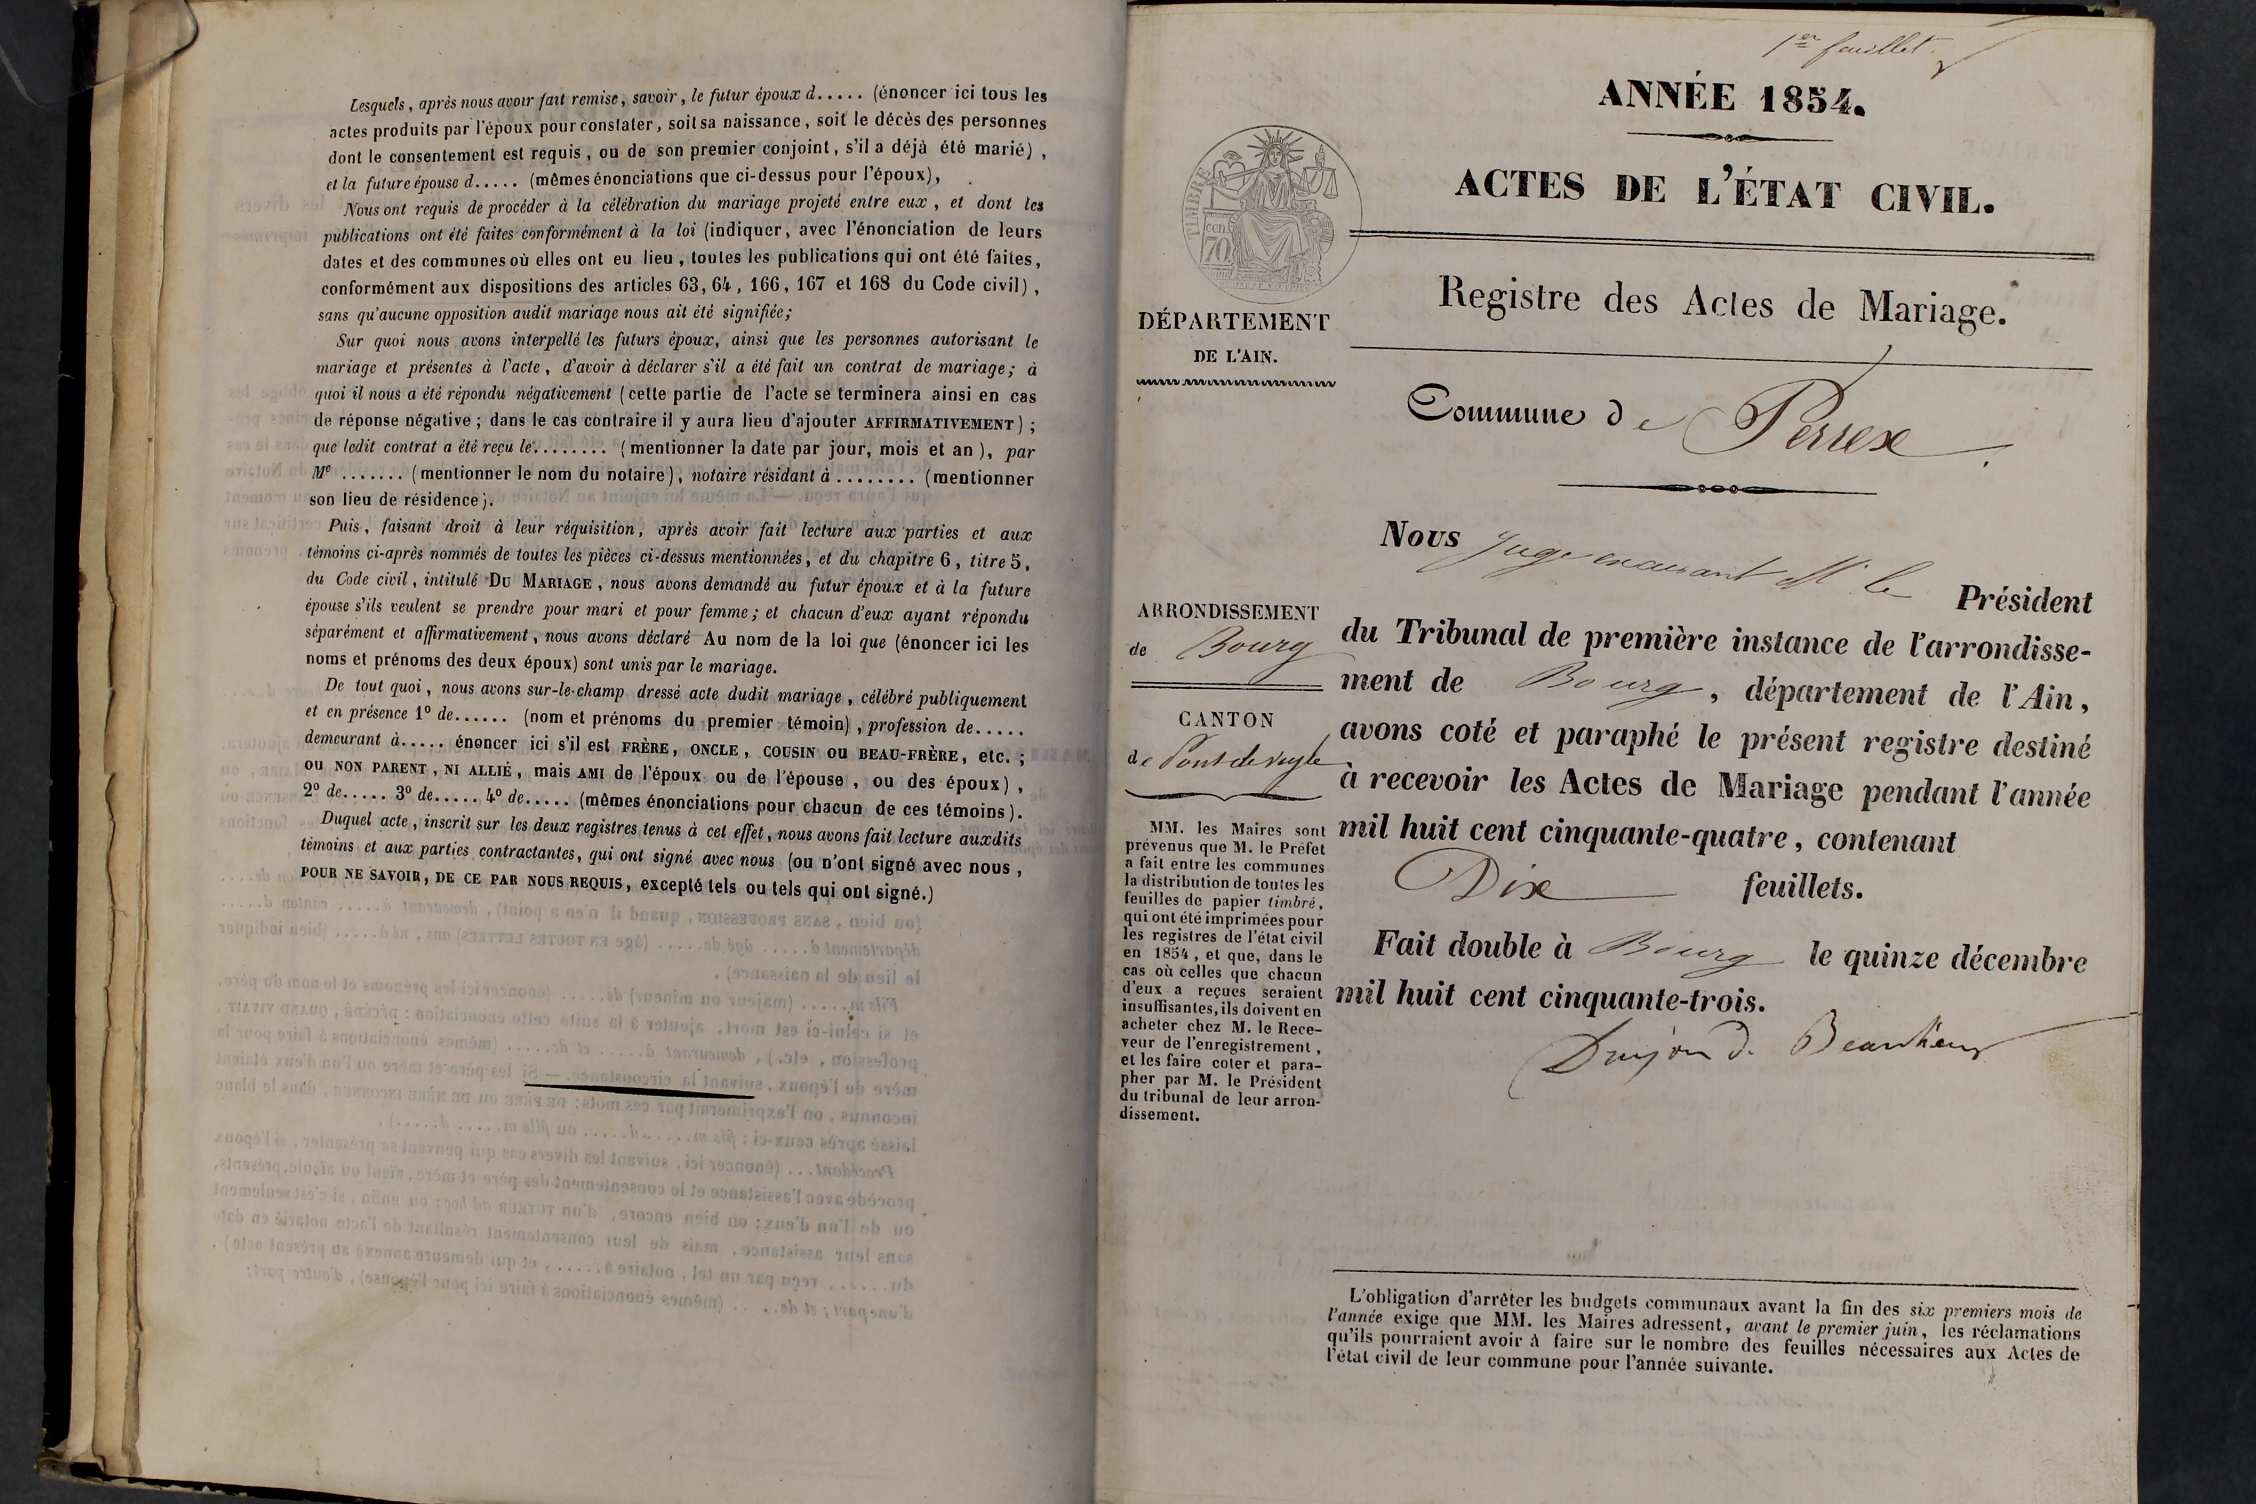 Lesquels, après nous avoir fait remise, savoir, le futur époux d..... (énoncer ici tous les
actes produits par l'époux pour constater, soit sa naissance, soit le décès des personnes
dont le consentement est requis, ou de son premier conjoint, s'il a déjà été marié),
et la future épouse d..... (mêmes énonciations que ci-dessus pour l'époux),
Nous ont requis de procéder à la célébration du mariage projeté entre eux, et dont les
publications ont été faites conformément à la loi (indiquer, avec l'énonciation de leurs
dates et des communes où elles ont eu lieu, toutes les publications qui ont été faites,
conformément aux dispositions des articles 63, 64, 166, 167 et 168 du Code civil),
sans qu'aucune opposition audit mariage nous ait été signifiée;
Sur quoi nous avons interpellé les futurs époux, ainsi que les personnes autorisant le
mariage et présentes à l'acte, d'avoir à déclarer s'il a été fait un contrat de mariage; à
quoi il nous a été répondu négativement (cette partie de l'acte se terminera ainsi en cas
de réponse négative; dans le cas contraire il y aura lieu d'ajouter AFFIRMATIVEMENT);
que ledit contrat a été reçu le........ (mentionner la date par jour, mois et an), par
Me ....... (mentionner le nom du notaire), notaire résidant à ........ (mentionner
son lieu de résidence).
Puis, faisant droit à leur réquisition, après avoir fait lecture aux parties et aux
témoins ci-après nommés de toutes les pièces ci-dessus mentionnées, et du chapitre 6, titre 5,
du Code civil, intitulé DU MARIAGE, nous avons demandé au futur époux et à la future
épouse s'ils veulent se prendre pour mari et pour femme; et chacun d'eux ayant répondu
séparément et affirmativement, nous avons déclaré Au nom de la loi que (énoncer ici les
noms et prénoms des deux époux) sont unis par le mariage.
De tout quoi, nous avons sur-le-champ dressé acte dudit mariage, célébré publiquement
et en présence 1º de...... (nom et prénoms du premier témoin), profession de.....
demeurant à..... énoncer ici s'il est FRÈRE, ONCLE, COUSIN OU BEAU-FRÈRE, etc.;
ou NON PARENT, NI ALLIÉ, mais AMI de l'époux ou de l'épouse, ou des époux),
2º de..... 3º de..... 4º de..... (mêmes énonciations pour chacun de ces témoins).
Duquel acte, inscrit sur les deux registres tenus à cet effet, nous avons fait lecture auxdits
témoins et aux parties contractantes, qui ont signé avec nous (ou n'ont signé avec nous,
POUR NE SAVOIR, DE CE PAR NOUS REQUIS, excepté tels ou tels qui ont signé.)
1er feuillet
ANNÉE 1854.
ACTES DE L'ÉTAT CIVIL.
TIMBRE
cen.
70
Registre des Actes de Mariage.
DÉPARTEMENT
DE L'AIN.
Commune de Perrex
Nous Juge encausant Mr le Président
du Tribunal de première instance de l'arrondisse-
ment de Bourg, département de l'Ain,
avons coté et paraphé le présent registre destiné
à recevoir les Actes de Mariage pendant l'année
mil huit cent cinquante-quatre, contenant
Dix feuillets.
Fait double à Bourg le quinze décembre
mil huit cent cinquante-trois.
Dujon d. Beaulieu
ARRONDISSEMENT
de Bourg
CANTON
de Pont de veyle
MM. les Maires sont
prévenus que M. le Préfet
a fait entre les communes
la distribution de toutes les
feuilles de papier timbré,
qui ont été imprimées pour
les registres de l'état civil
en 1854, et que, dans le
cas où celles que chacun
d'eux a reçues seraient
insuffisantes, ils doivent en
acheter chez M. le Rece-
veur de l'enregistrement,
et les faire coter et para-
pher par M. le Président
du tribunal de leur arron-
dissement.
L'obligation d'arrêter les budgets communaux avant la fin des six premiers mois de
l'année exige que MM. les Maires adressent, avant le premier juin, les réclamations
qu'ils pourraient avoir à faire sur le nombre des feuilles nécessaires aux Actes de
l'état civil de leur commune pour l'année suivante.